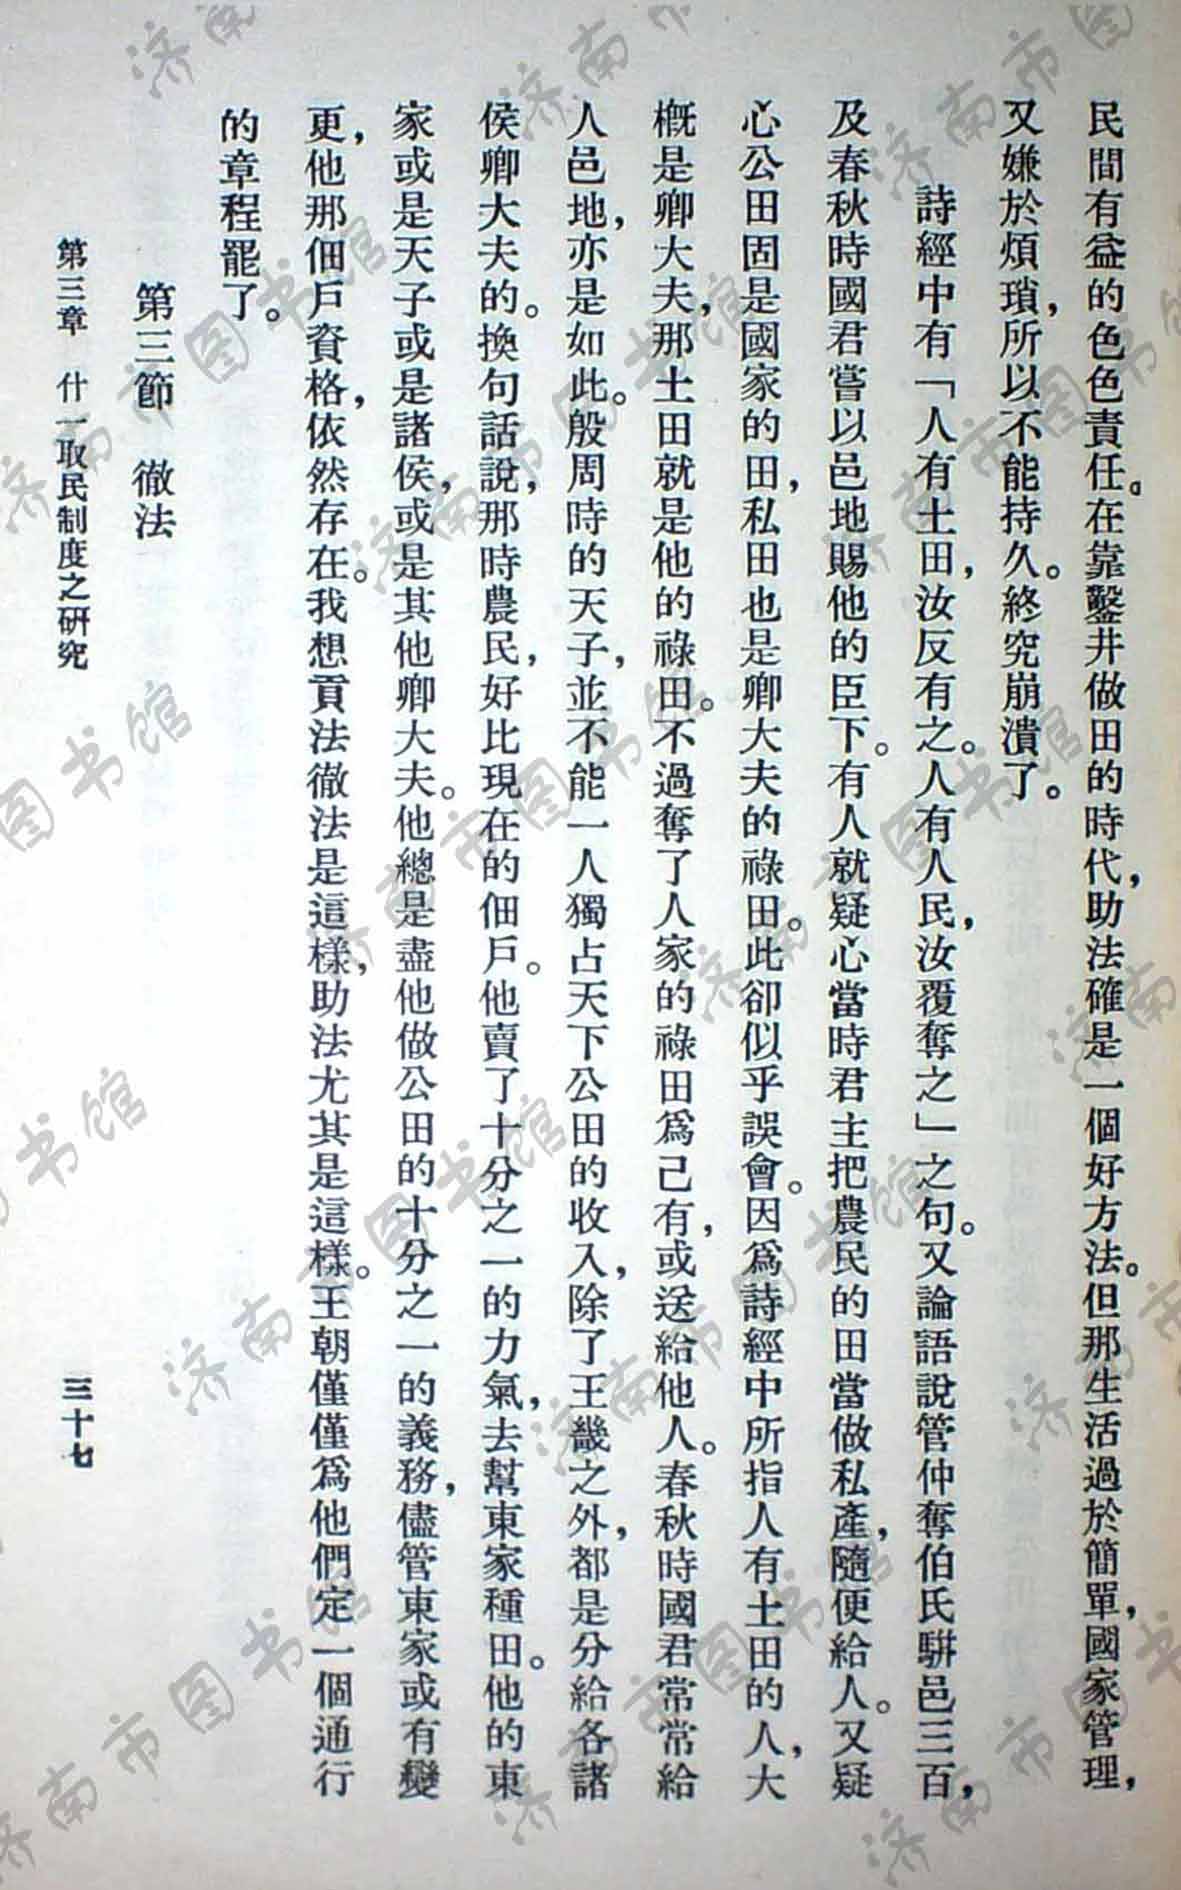 民間有益的色色責任。在靠鑿井做田的時代，助法確是一個好方法。但那生活過於簡單，國家管理，
又嫌於煩瑣，所以不能持久。終究崩潰了。
詩經中有「人有土田，汝反有之。人有人民，汝覆奪之」之句。又論語說管仲奪伯氏駢邑三百，
及春秋時國君嘗以邑地賜他的臣下。有人就疑心當時君主把農民的田當做私產，隨便給人。又疑
心公田固是國家的田，私田也是卿大夫的祿田。此卻似乎誤會。因爲詩經中所指人有土田的人，大
概是卿大夫，那土田就是他的祿田。不過奪了人家的祿田爲己有，或送給他人。春秋時國君常常給
人邑地，亦是如此。殷周時的天子，並不能一人獨占天下公田的收入，除了王畿之外，都是分給各諸
侯卿大夫的。換句話說，那時農民，好比現在的佃戶。他賣了十分之一的力氣，去幫東家種田。他的東
家或是天子或是諸侯，或是其他卿大夫。他總是盡他做公田的十分之一的義務，儘管東家或有變
更，他那佃戶資格，依然存在。我想貢法徹法是這樣，助法尤其是這樣。王朝僅僅爲他們定一個通行
的章程罷了。
第三節　徹法
第三章　什一取民制度之研究
三十七
济南市图书馆